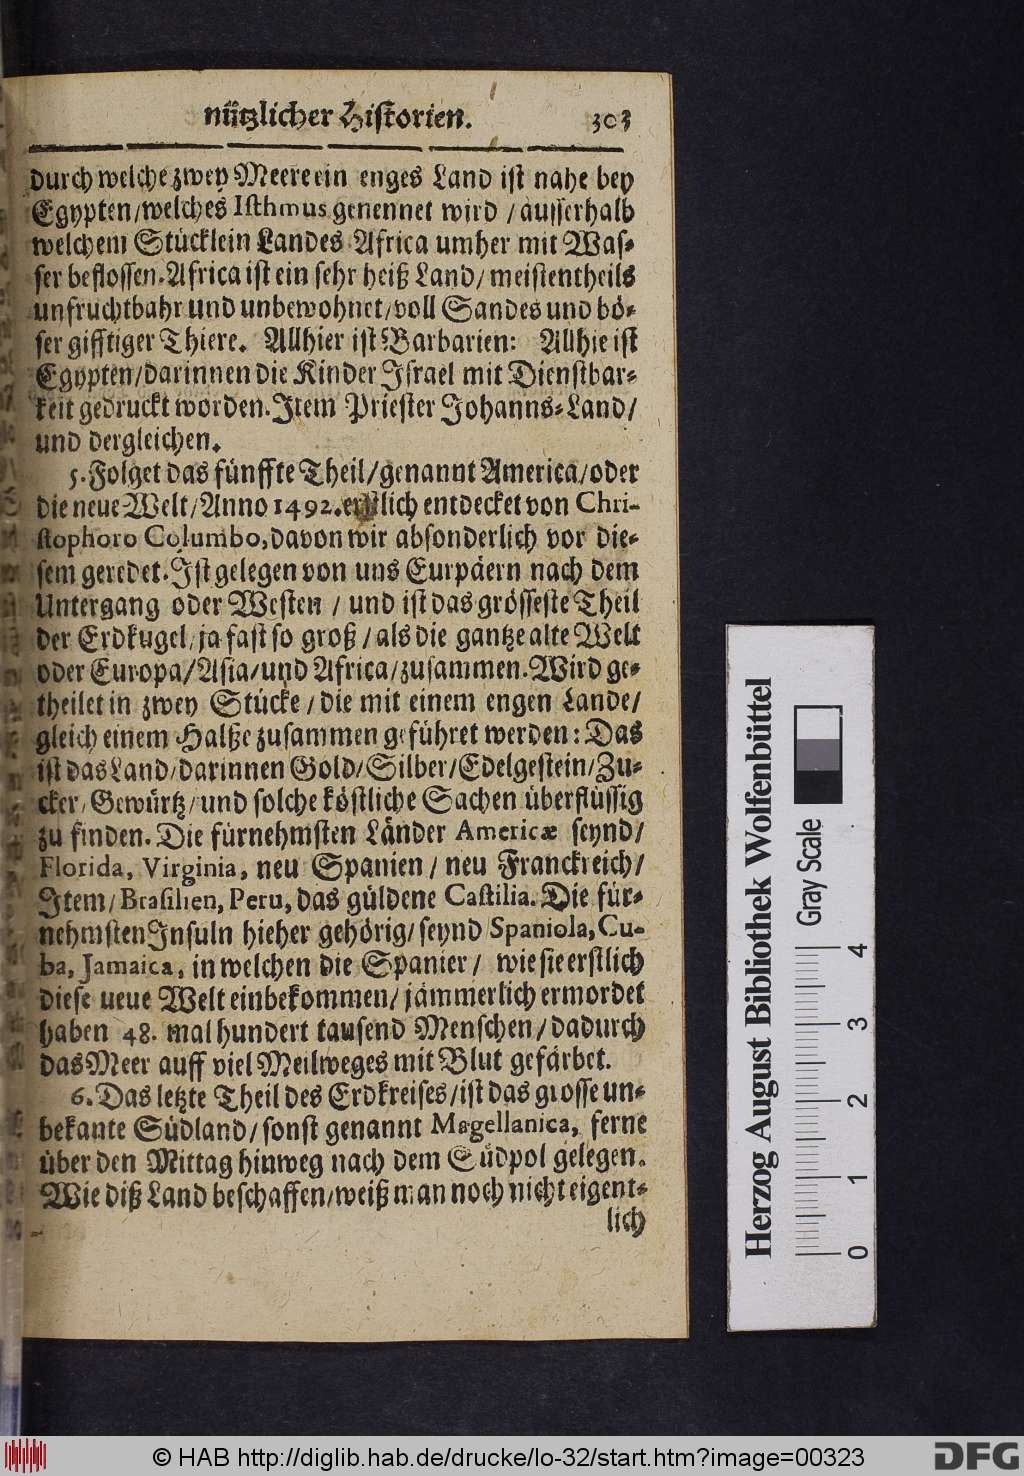 nützlicher Historien. 303
durch welche zwey Meere ein enges Land ist nahe bey
Egypten/welches Isthmus genennet wird / ausserhalb
welchem Stücklein Landes Africa umher mit Was-
ser beflossen. Africa ist ein sehr heiß Land/ meistentheils
unfruchtbahr und unbewohnet/voll Sandes und bö-
ser gifftiger Thiere. Allhier ist Barbarien: Allhie ist
Egypten/darinnen die Kinder Israel mit Dienstbar-
keit gedruckt worden. Item Priester Johanns-Land/
und dergleichen.
5. Folget das fünffte Theil/genannt America/oder
die neue Welt/Anno 1492. erstlich entdecket von Chri-
stophoro Columbo, davon wir absonderlich vor die-
sem geredet. Ist gelegen von uns Eurpäern nach dem
Untergang oder Westen / und ist das grösseste Theil
der Erdkugel/ ja fast so groß / als die gantze alte Welt
oder Europa/Asia/und Africa/zusammen. Wird ge-
theilet in zwey Stücke / die mit einem engen Lande/
gleich einem Halße zusammen geführet werden: Das
ist das Land/darinnen Gold/Silber/Edelgestein/Zu-
cker/Gewürtz/und solche köstliche Sachen überflüssig
zu finden. Die fürnehmsten Länder Americæ seynd/
Florida, Virginia, neu Spanien / neu Franckreich/
Item/ Brasilien, Peru, das güldene Castilia. Die für-
nehmsten Insuln hieher gehörig/ seynd Spaniola, Cu-
ba, Jamaica, in welchen die Spanier / wie sie erstlich
diese neue Welt einbekommen/ jämmerlich ermordet
haben 48. mal hundert tausend Menschen / dadurch
das Meer auff viel Meilweges mit Blut gefärbet.
6. Das letzte Theil des Erdkreises/ist das grosse un-
bekante Südland/ sonst genannt Magellanica, ferne
über den Mittag hinweg nach dem Südpol gelegen.
Wie diß Land beschaffen/weiß man noch nicht eigent-
lich
Herzog August Bibliothek Wolfenbüttel
Gray Scale
0 1 2 3 4
© HAB http://diglib.hab.de/drucke/lo-32/start.htm?image=00323
DFG